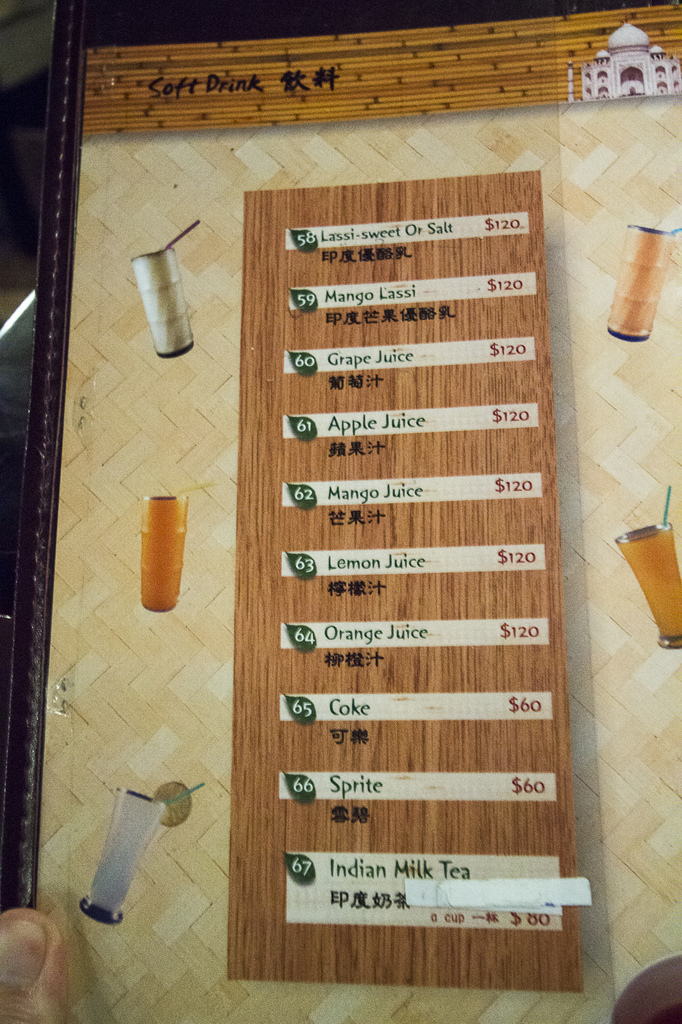 Soft Drink 飲料
58 Lassi-sweet Or Salt $120
印度優酪乳
59 Mango Lassi $120
印度芒果優酪乳
60 Grape Juice $120
葡萄汁
61 Apple Juice $120
蘋果汁
62 Mango Juice $120
芒果汁
63 Lemon Juice $120
檸檬汁
64 Orange Juice $120
柳橙汁
65 Coke $60
可樂
66 Sprite $60
雪碧
67 Indian Milk Tea
印度奶茶
a cup 一杯 $80